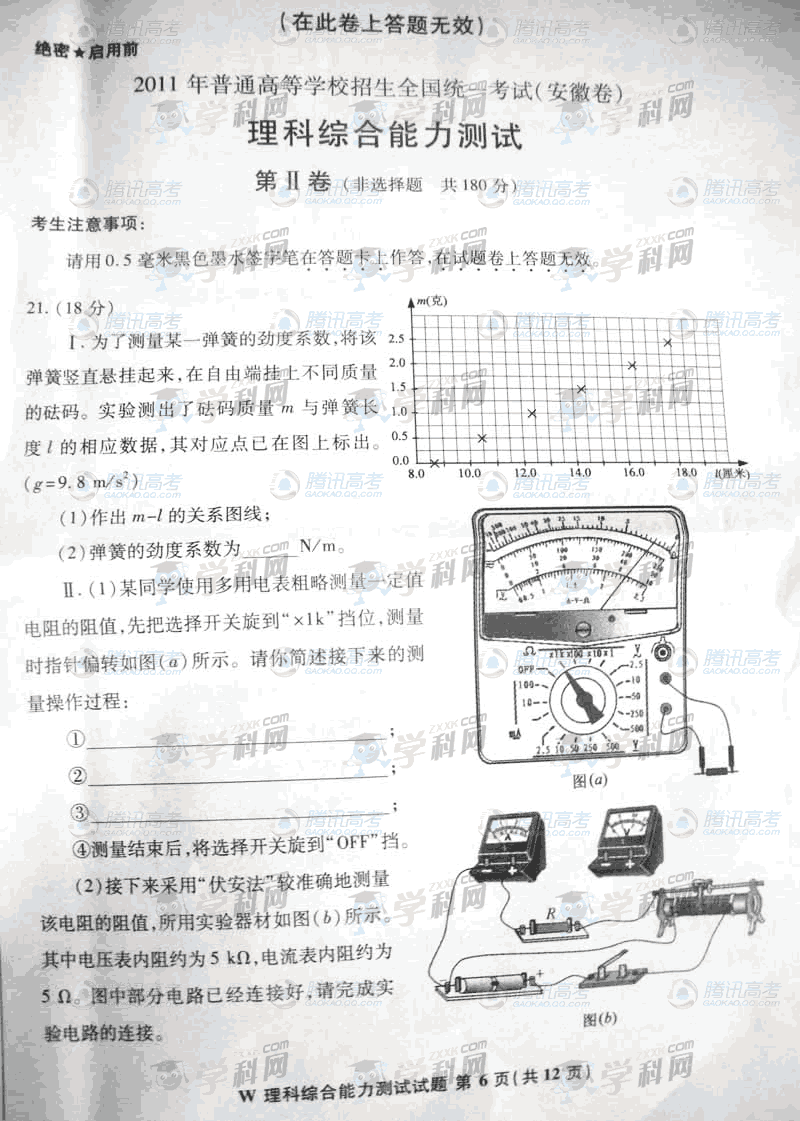 (在此卷上答题无效)
绝密★启用前
2011年普通高等学校招生全国统一考试(安徽卷)
理科综合能力测试
第Ⅱ卷(非选择题 共180分)
考生注意事项:
请用0.5毫米黑色墨水签字笔在答题卡上作答,在试题卷上答题无效。
21.(18分)
Ⅰ.为了测量某一弹簧的劲度系数,将该
弹簧竖直悬挂起来,在自由端挂上不同质量
的砝码。实验测出了砝码质量m与弹簧长
度l的相应数据,其对应点已在图上标出。
(g=9.8 m/s²)
(1)作出m-l的关系图线;
(2)弹簧的劲度系数为______N/m。
m(克)
2.5
2.0
1.5
1.0
0.5
0.0
8.0 10.0 12.0 14.0 16.0 18.0 l(厘米)
Ⅱ.(1)某同学使用多用电表粗略测量一定值
电阻的阻值,先把选择开关旋到“×1k”挡位,测量
时指针偏转如图(a)所示。请你简述接下来的测
量操作过程:
①______________________;
②______________________;
③______________________;
④测量结束后,将选择开关旋到“OFF”挡。
A-V-Ω
Ω ×1k×100 ×10×1
OFF
100
10
mA
2.5 10 50 250 500
V
2.5
10
50
250
500
图(a)
(2)接下来采用“伏安法”较准确地测量
该电阻的阻值,所用实验器材如图(b)所示。
其中电压表内阻约为5 kΩ,电流表内阻约为
5 Ω。图中部分电路已经连接好,请完成实
验电路的连接。
A
V
R
+
图(b)
W 理科综合能力测试试题 第6页(共12页)
腾讯高考
GAOKAO.QQ.COM
学科网
ZXXK.COM